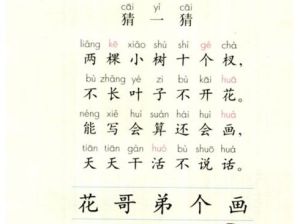 cāi yì cāi
猜一猜
liǎng kē xiǎo shù shí gè chà
两棵小树十个杈，
bù zhǎng yè zi bù kāi huā
不长叶子不开花。
néng xiě huì suàn hái huì huà
能写会算还会画，
tiān tiān gàn huó bù shuō huà
天天干活不说话。
花哥弟个画